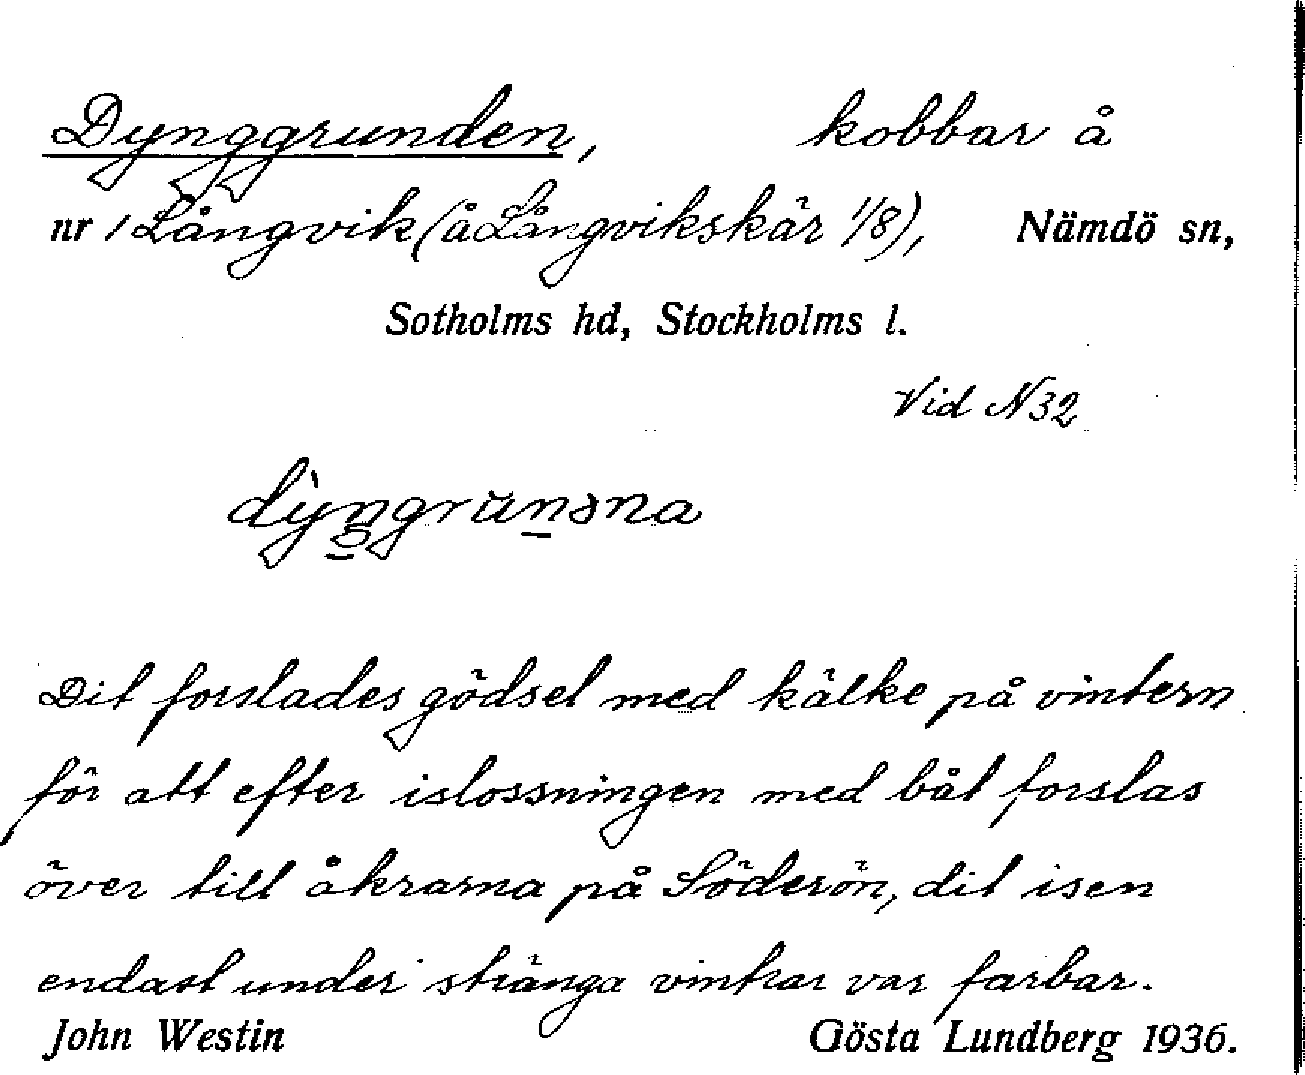 Dynggrunden, kobbar å
nr 1 Långvik (å Långvikskär 1/8), Nämdö sn,
Sotholms hd, Stockholms l.
Vid N32
Dit forslades gödsel med kälke på vintern
för att efter islossningen med båt forslas
över till åkrarna på Söderön, dit isen
endast under stränga vintrar var farbar.
John Westin Gösta Lundberg 1936.